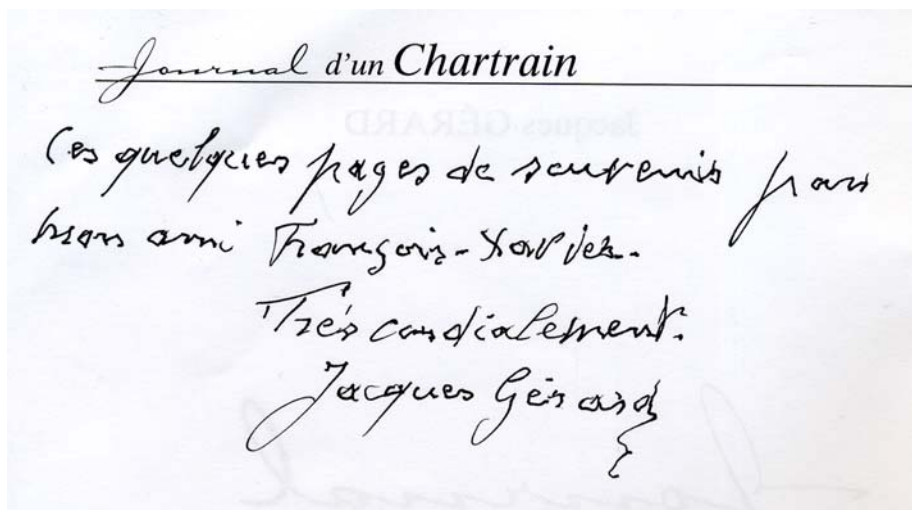 Journal d'un Chartrain
Jacques GÉRARD
Ces quelques pages de souvenirs pour
mon ami François-Xavier.
Très cordialement.
Jacques Gérard
Journal